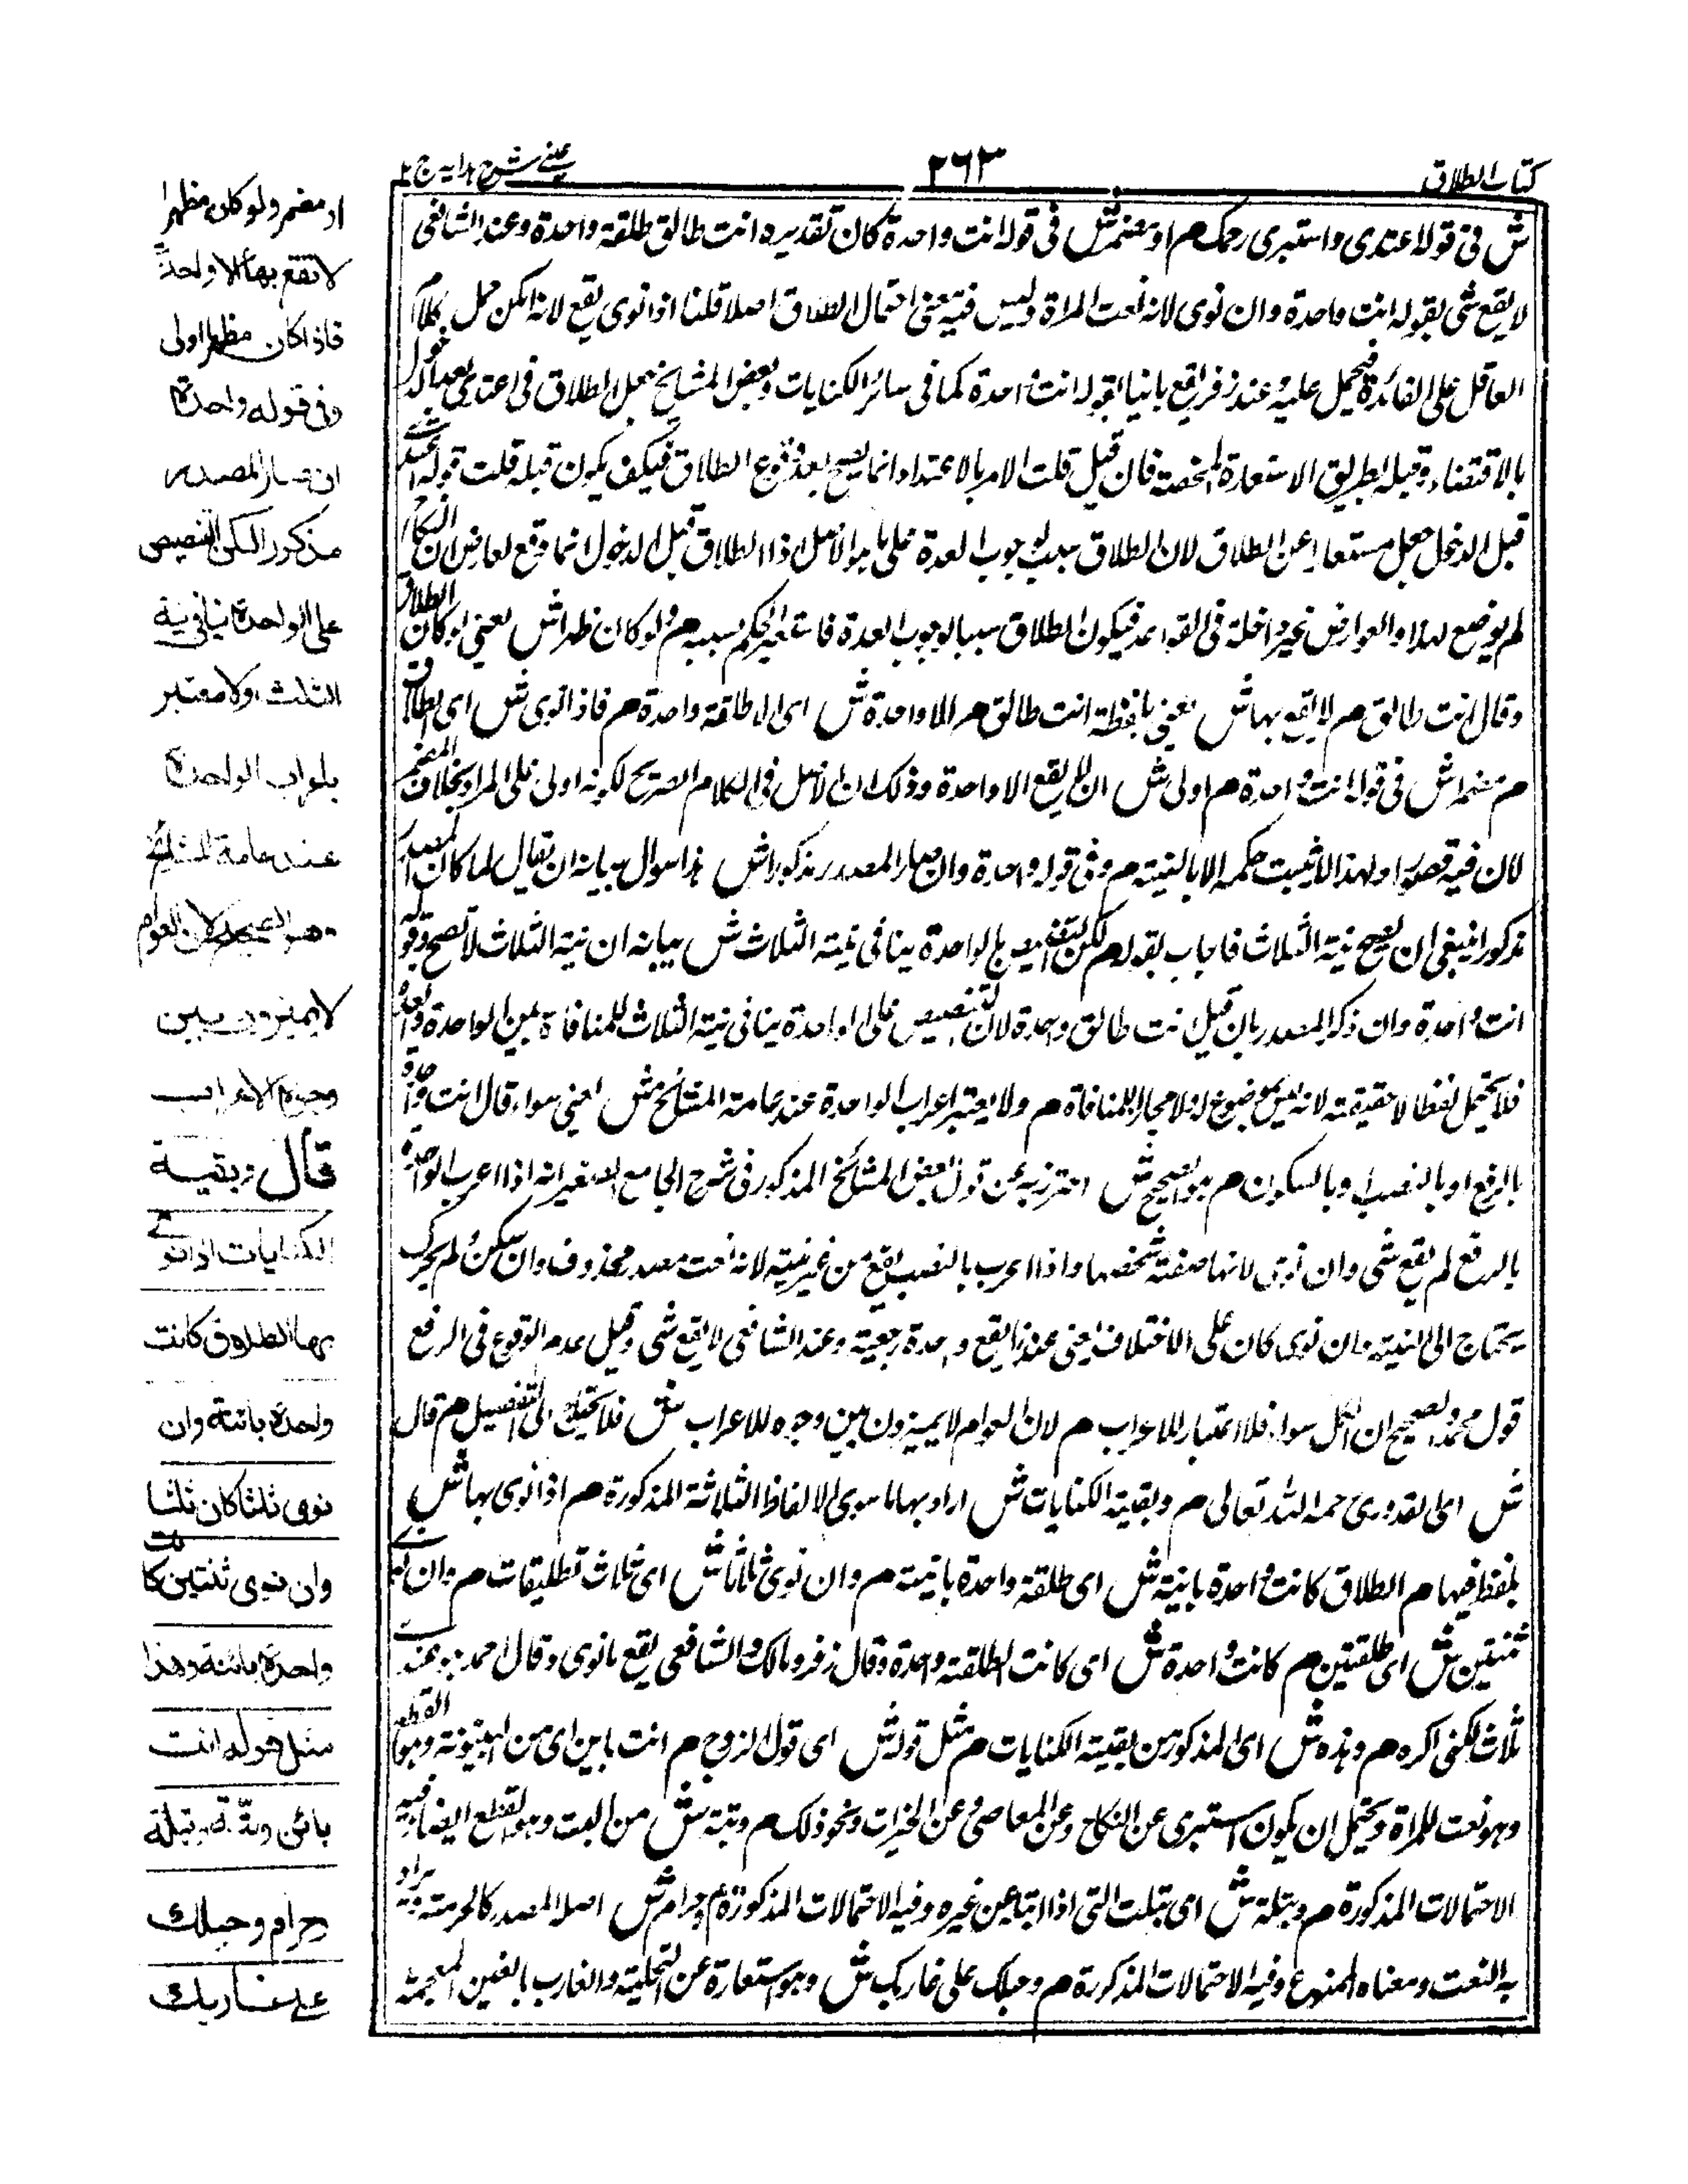 كتاب الطلاق
٢٦٣
عينى شرح هدايه ج ٢
ش فى قوله اعتدى واستبرى رحمك م او مضمر ش فى قوله انت واحدة كان تقديره انت طالق طلقة واحدة وعند الشافعى
لا يقع شى بقوله انت واحدة وان نوى لانه نعت المراة وليس فيه معنى احتمال الطلاق اصلا قلنا اذا نوى يقع لانه امكن حمل كلام
العاقل على الفائدة فيحمل عليه وعند زفر يقع باينا بقوله انت واحدة كما فى سائر الكنايات وبعض المشايخ جعل الطلاق فى اعتدى بعد الدخول
بالاقتضاء وقبله بطريق الاستعارة المحضة فان قيل قلت الامر بالاعتداد انما يصح بعد وقوع الطلاق فكيف يكون قبله قلت قوله اعتدى
قبل الدخول جعل مستعارا عن الطلاق لان الطلاق سبب لوجوب العدة على ما هو الاصل اذ الطلاق قبل الدخول انما وقع لعارض ان النكاح
لم يوضع لهذا والعوارض غير داخلة فى القواعد فيكون الطلاق سببا لوجوب العدة فاستعير الحكم لسببه م ولو كان ظهرا ش يعنى لو كان الطلاق
وقال انت طالق م لا يقع بها ش يعنى بلفظة انت طالق م الا واحدة ش اى الا طلقة واحدة م فاذا نوى ش اى الطلاق
م مضمرا ش فى قوله انت واحدة م اولى ش ان لا يقع الا واحدة وذلك ان الاصل فى الكلام الصريح لكونه اولى على المراد بخلاف المضمر
لان فيه قصورا ولهذا لا يثبت حكمه الا بالنية م وفى قوله واحدة وان صار المصدر مذكورا ش هذا سوال بيانه ان يقال لما كان المصدر
مذكورا ينبغى ان يصح نية الثلاث فاجاب بقوله م لكن التنصيص بالواحدة ينافى نية الثلاث ش بيانه ان نية الثلاث لا تصح فى قوله
انت واحدة وان ذكر المصدر بان قيل انت طالق واحدة لان التنصيص على الواحدة ينافى نية الثلاث للمنافاة بين الواحدة والعدد
فلا يحتمل لفظا لا حقيقته لانه ليس بموضوع له ولا مجازا للمنافاة م ولا يعتبر اعراب الواحدة عند عامة المشايخ ش يعنى سواء قال انت واحدة
بالرفع او بالنصب او بالسكون م هو الصحيح ش احترز به عن قول بعض المشائخ المذكور فى شرح الجامع الصغير انه اذا اعرب الواحدة
بالرفع لم يقع شى وان نوى لانها صفة شخصها واذا اعرب بالنصب يقع من غير نية لانه نعت مصدر محذوف وان سكن ولم يحرك
يحتاج الى النية وان نوى كان على الاختلاف يعنى عندنا يقع واحدة رجعية وعند الشافعى لا يقع شى وقيل عدم الوقوع فى الرفع
قول محمد والصحيح ان الكل سواء فلا اعتبار للاعراب م لان العوام لا يميزون بين وجوه للاعراب ش فلا يحتاج الى التفصيل م قال
ش اى القدورى رحمه الله تعالى م وبقية الكنايات ش اراد بها ما سوى الالفاظ الثلاثة المذكورة م اذا نوى بها ش
بلفظ فيها م الطلاق كانت واحدة باينة ش اى طلقة واحدة باينة م وان نوى ثلاثا ش اى ثلاث تطليقات م وان نوى
ثنتين ش اى طلقتين م كانت واحدة ش اى كانت الطلقة واحدة وقال زفر ومالك والشافعى يقع ما نوى وقال احمد عند
ثلاث لكنى اكره م وهذه ش اى المذكور من بقية الكنايات م مثل قوله ش اى قول الزوج م انت باين اى من البينونة وهو القطع
وهو نعت للمراة ويحتمل ان يكون استبرى عن النكاح وعن المعاصى وعن الخيرات ونحو ذلك م وبتة ش من البت وهو القطع ايضا وفيه
الاحتمالات المذكورة م وبتلة ش اى بتلت التى اذا ابتاعين غيره وفيه الاحتمالات المذكورة م وحرام ش اصله المصدر كالحرمة ويراد
به النعت ومعناه الممنوع وفيه الاحتمالات المذكورة م وحبلك على غاربك ش وهو استعارة عن التخلية والغارب بالغين المعجمة
او مضمر ولو كان مظهرا
لا تقع بها الا واحدة
فاذا كان مظهرا اولى
وفى قوله واحدة
ان صار المصدر
مذكورا لكن التنصيص
على الواحدة ينافى نية
الثلث ولا معتبر
باعراب الواحدة
عند عامة المشايخ
هو الصحيح لان العوام
لا يميزون بين
وجوه الاعراب
قال وبقية
الكنايات اذا نوى
بها الطلاق كانت
واحدة بائنة وان
نوى ثلثا كان ثلثا
وان نوى ثنتين كانت
واحدة بائنة وهذا
مثل قوله انت
بائن وبتة وبتلة
حرام وحبلك
على غاربك